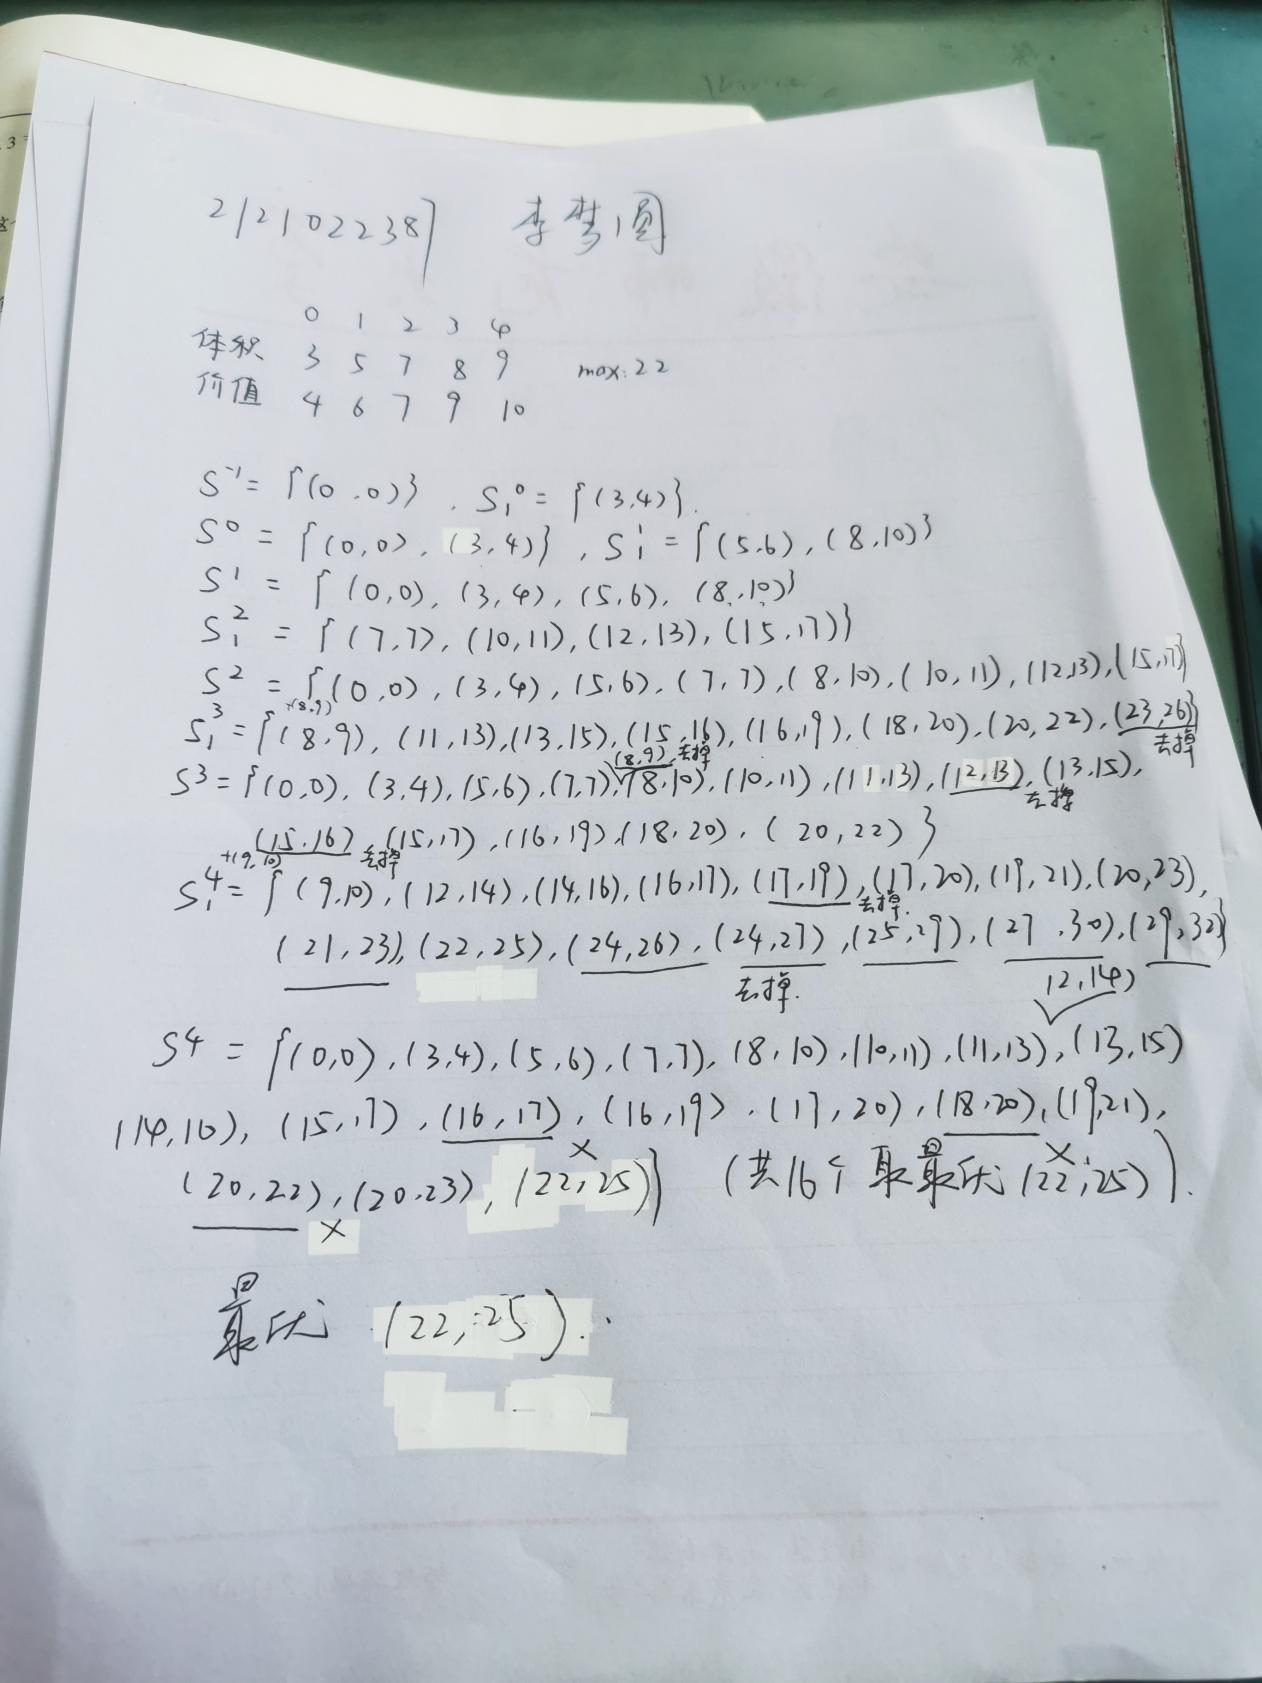 2121022387 李梦圆
0 1 2 3 4
体积 3 5 7 8 9 max:22
价值 4 6 7 9 10
S⁻¹ = {(0,0)}, S₁⁰ = {(3,4)}.
S⁰ = {(0,0), (3,4)}, S₁¹ = {(5,6), (8,10)}
S¹ = {(0,0), (3,4), (5,6), (8,10)}
S₁² = {(7,7), (10,11), (12,13), (15,17)}
S² = {(0,0), (3,4), (5,6), (7,7), (8,10), (10,11), (12,13), (15,17)}
+(8,9)
S₁³ = {(8,9), (11,13), (13,15), (15,16), (16,19), (18,20), (20,22), (23,26)}
去掉
(8,9) 去掉
S³ = {(0,0), (3,4), (5,6), (7,7), (8,10), (10,11), (11,13), (12,13), (13,15),
去掉
(15,16), (15,17), (16,19), (18,20), (20,22)}
去掉
+(9,10)
S₁⁴ = {(9,10), (12,14), (14,16), (16,17), (17,19), (17,20), (19,21), (20,23),
去掉.
(21,23), (22,25), (24,26), (24,27), (25,29), (27,30), (29,32)}
去掉.
12,14)
S⁴ = {(0,0), (3,4), (5,6), (7,7), (8,10), (10,11), (11,13), (13,15)
(14,16), (15,17), (16,17), (16,19), (17,20), (18,20), (19,21),
× ×
(20,22), (20,23), (22,25)} (共16个 取最优 (22,25)).
×
最优 (22,25).